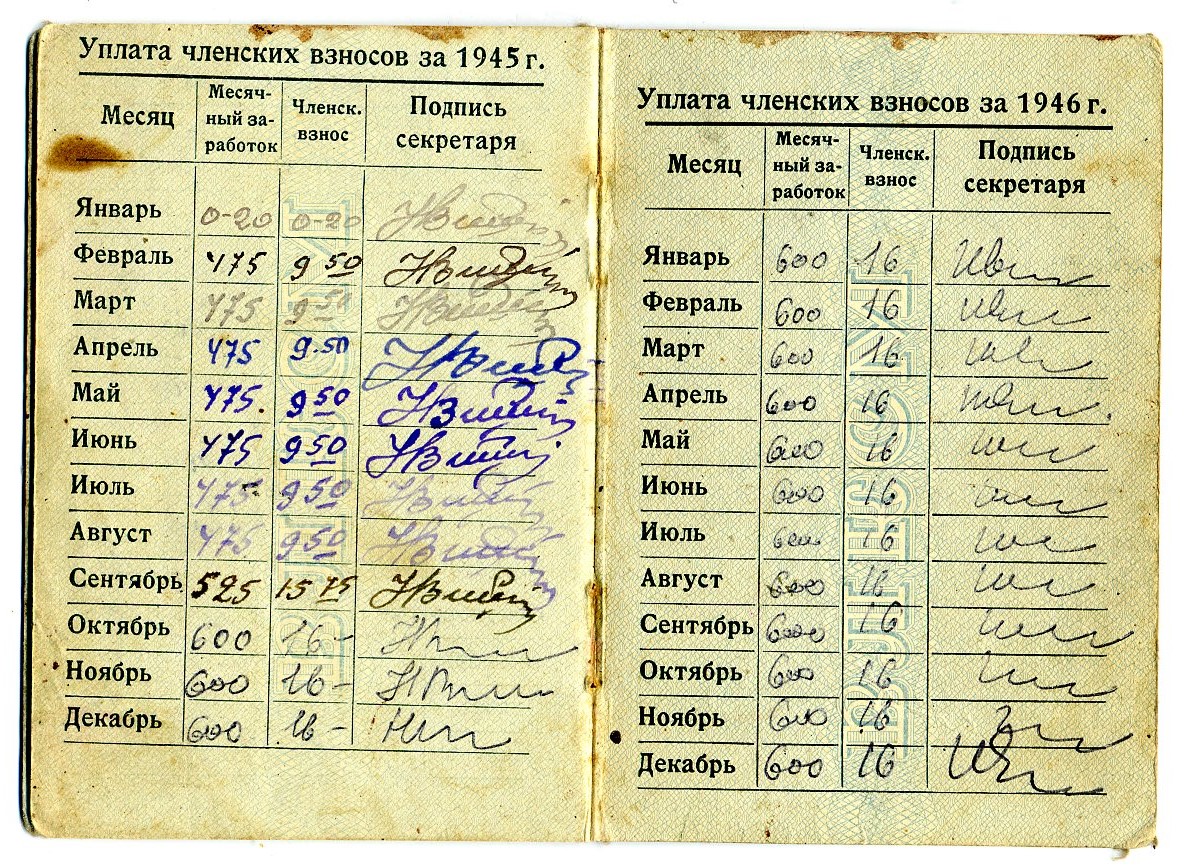 Уплата членских взносов за 1945 г.
Месяц Месяч-ный за-работок Членск. взнос Подпись секретаря
Январь 0-20 0-20
Февраль 475 9 50
Март 475 9 50
Апрель 475 9.50
Май 475. 9 50
Июнь 475 9 50
Июль 475 9 50
Август 475 9 50
Сентябрь 525 15 75
Октябрь 600 16-
Ноябрь 600 16-
Декабрь 600 16-
Уплата членских взносов за 1946 г.
Месяц Месяч-ный за-работок Членск. взнос Подпись секретаря
Январь 600 16
Февраль 600 16
Март 600 16
Апрель 600 16
Май 600 16
Июнь 600 16
Июль 600 16
Август 600 16
Сентябрь 600 16
Октябрь 600 16
Ноябрь 600 16
Декабрь 600 16